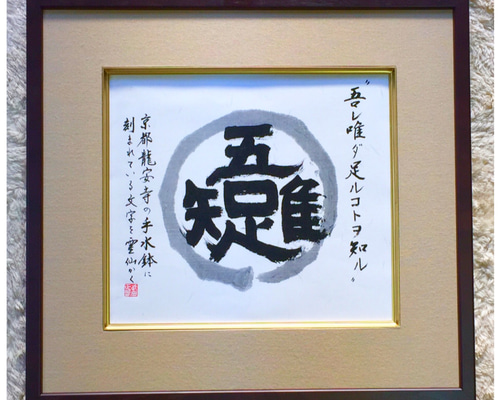 “吾レ唯ダ足ルコトヲ知ル”
五隹疋矢
京都龍安寺の手水鉢に
刻まれている文字を 雲仙かく